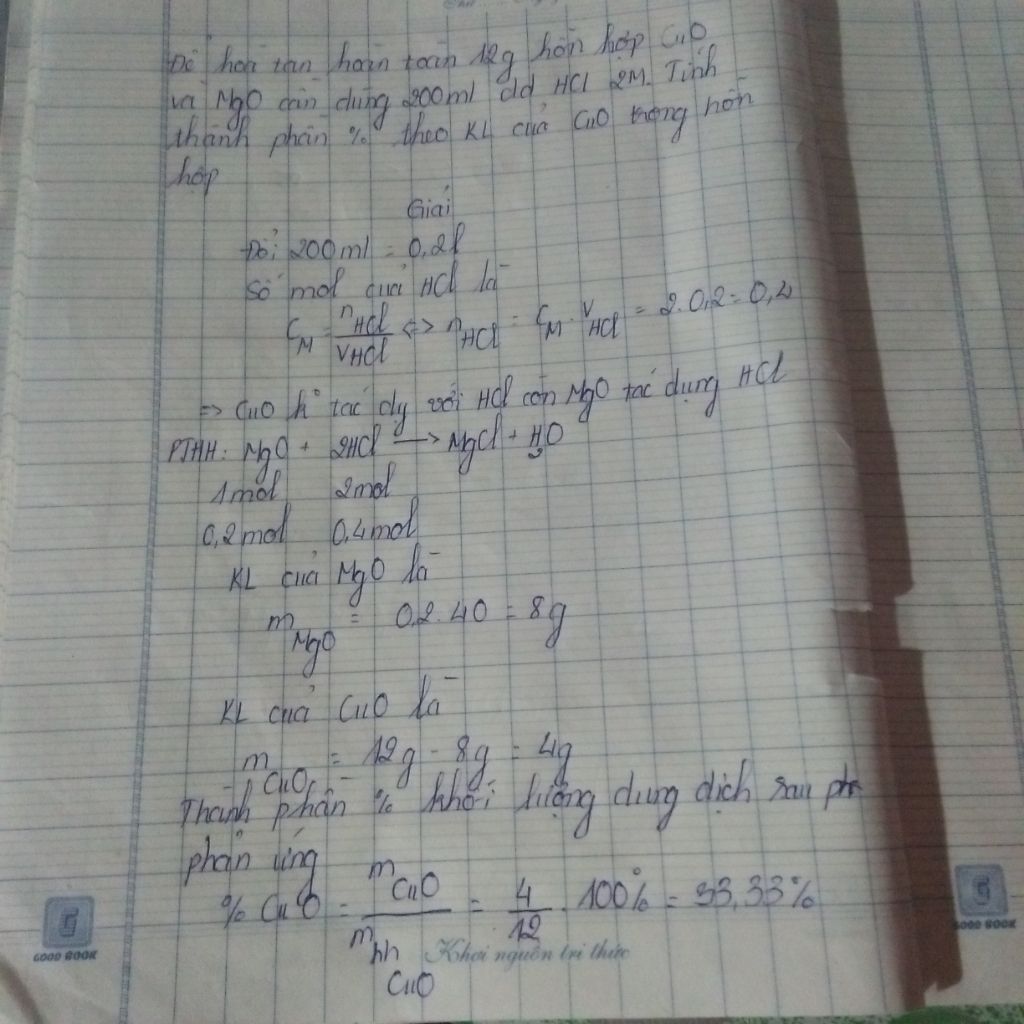 Để hoà tan hoàn toàn 12g hỗn hợp CuO
và MgO cần dùng 200ml dd HCl 2M. Tính
thành phần % theo KL của CuO trong hỗn
hợp
Giải
Đổi 200ml = 0,2l
Số mol của HCl là
C_M = n_HCl / V_HCl <=> n_HCl = C_M . V_HCl = 2.0,2 = 0,4
=> CuO k tác dụ với HCl còn MgO tác dụng HCl
PTHH: MgO + 2HCl → MgCl + H₂O
1mol 2mol
0,2mol 0,4mol
KL của MgO là
m_MgO = 0,2.40 = 8g
KL của CuO là
m_CuO = 12g - 8g = 4g
Thành phần % khối lượng dung dịch sau
phản ứng
% CuO = m_CuO / m_hh CuO = 4/12 . 100% = 33,33%
Khơi nguồn tri thức
GOOD BOOK
GOOD BOOK